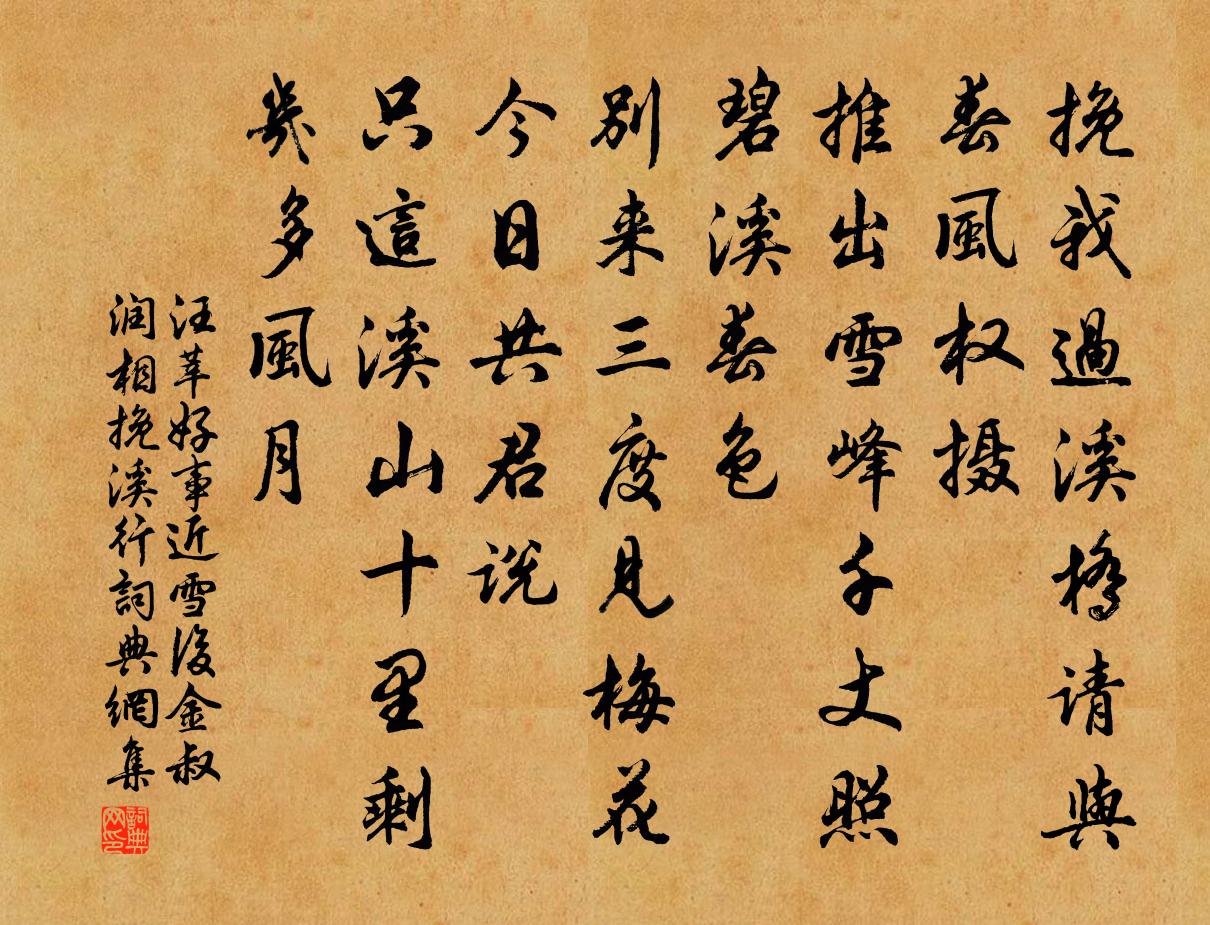 挽我過溪橋請與
春風权摄
推出雪峰千丈照
碧溪春色
別来三度見梅花
今日共君说
只這溪山十里剩
幾多風月
汪莘好事近雪後金叔
润相挽溪行詞典網集
詞典网印